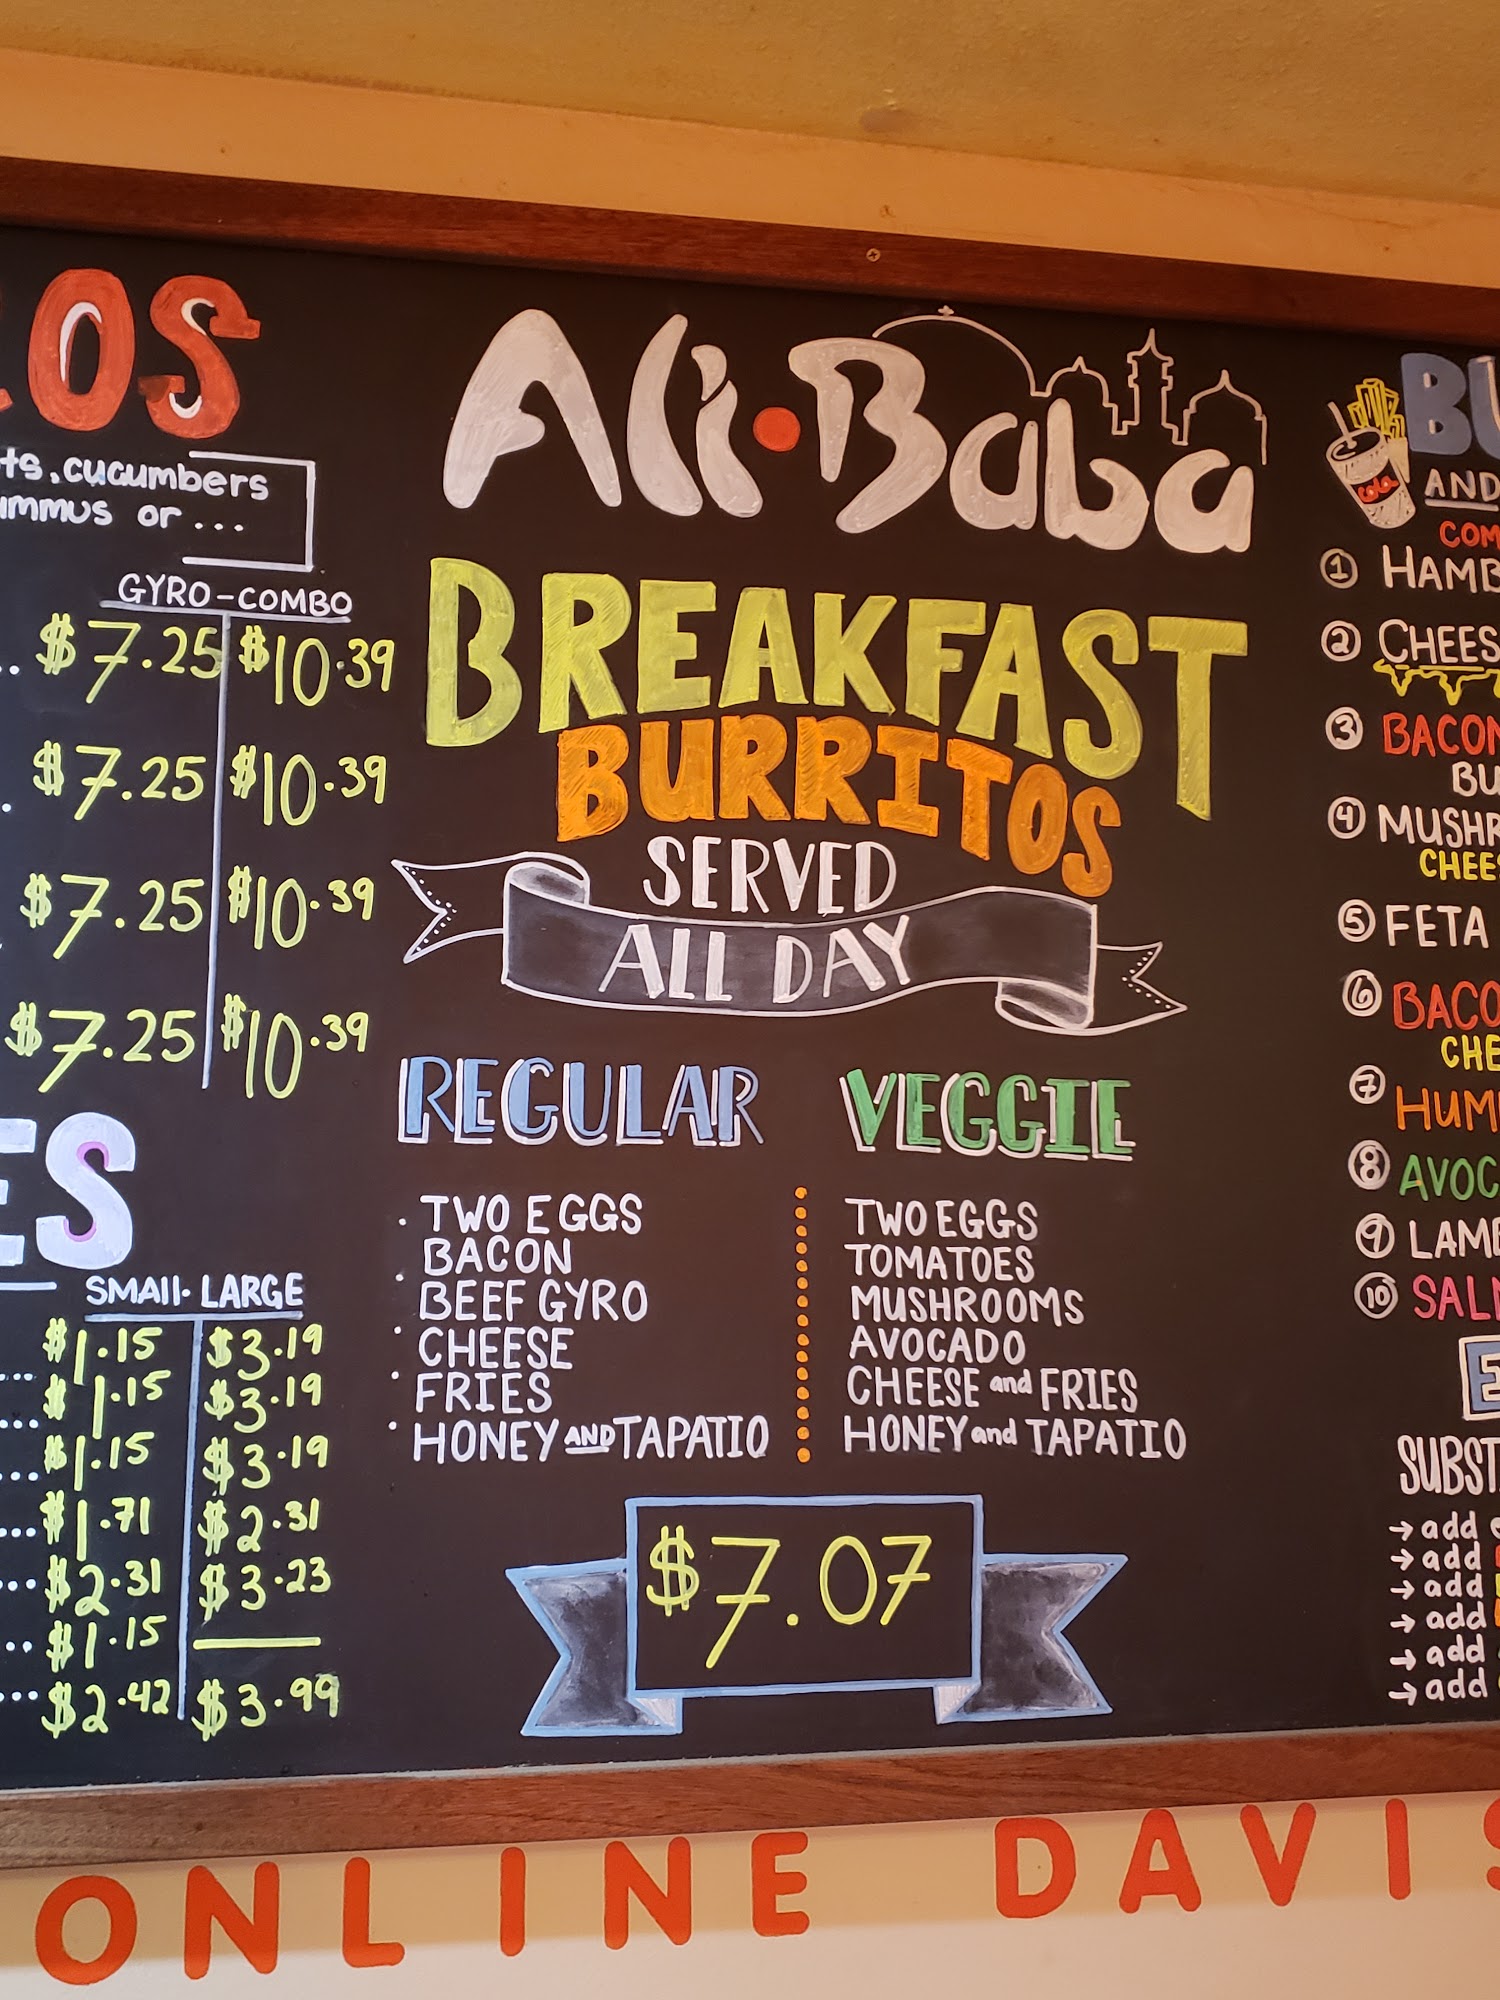 OS
ts, cucumbers
ummus or ...
GYRO-COMBO
.. $7.25 $10.39
. $7.25 $10.39
$7.25 $10.39
$7.25 $10.39
ES
SMALL·LARGE
... $1.15 $3.19
... $1.15 $3.19
... $1.15 $3.19
... $1.71 $2.31
... $2.31 $3.23
.. $1.15
... $2.42 $3.99
Ali·Baba
BREAKFAST
BURRITOS
SERVED
ALL DAY
REGULAR
· TWO EGGS
· BACON
BEEF GYRO
· CHEESE
· FRIES
· HONEY AND TAPATIO
VEGGIE
TWO EGGS
TOMATOES
MUSHROOMS
AVOCADO
CHEESE and FRIES
HONEY and TAPATIO
$7.07
BU
AND
cola
COM
1 HAMB
2 CHEES
3 BACON
BU
4 MUSHR
CHEES
5 FETA
6 BACO
CHE
7 HUM
8 AVOC
9 LAMB
10 SAL
E
SUBST
→ add
→ add
→ add
→ add
→ add
→ add
ONLINE DAVIS